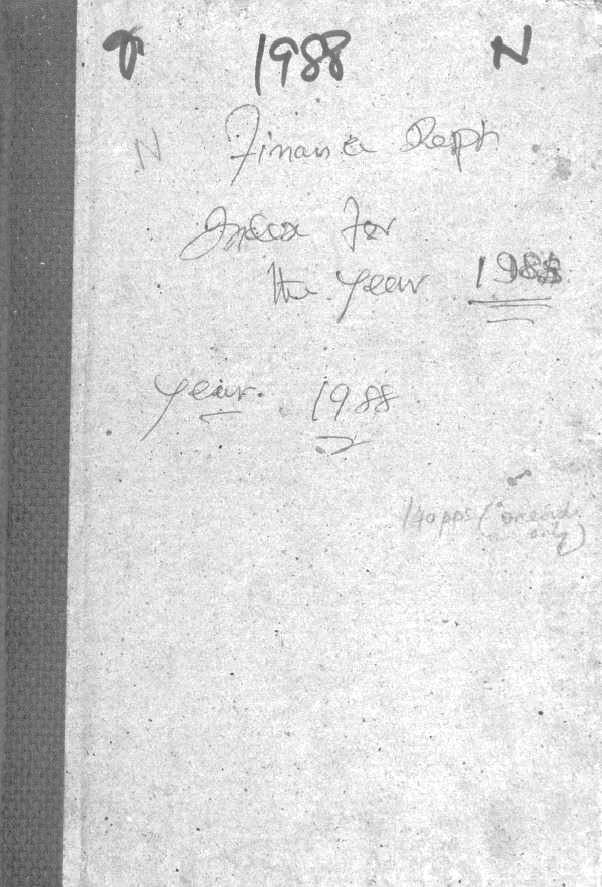 1988 N
N Finance Deptt
Index for
the year 1988
year. 1988
140 pps (one end
only)